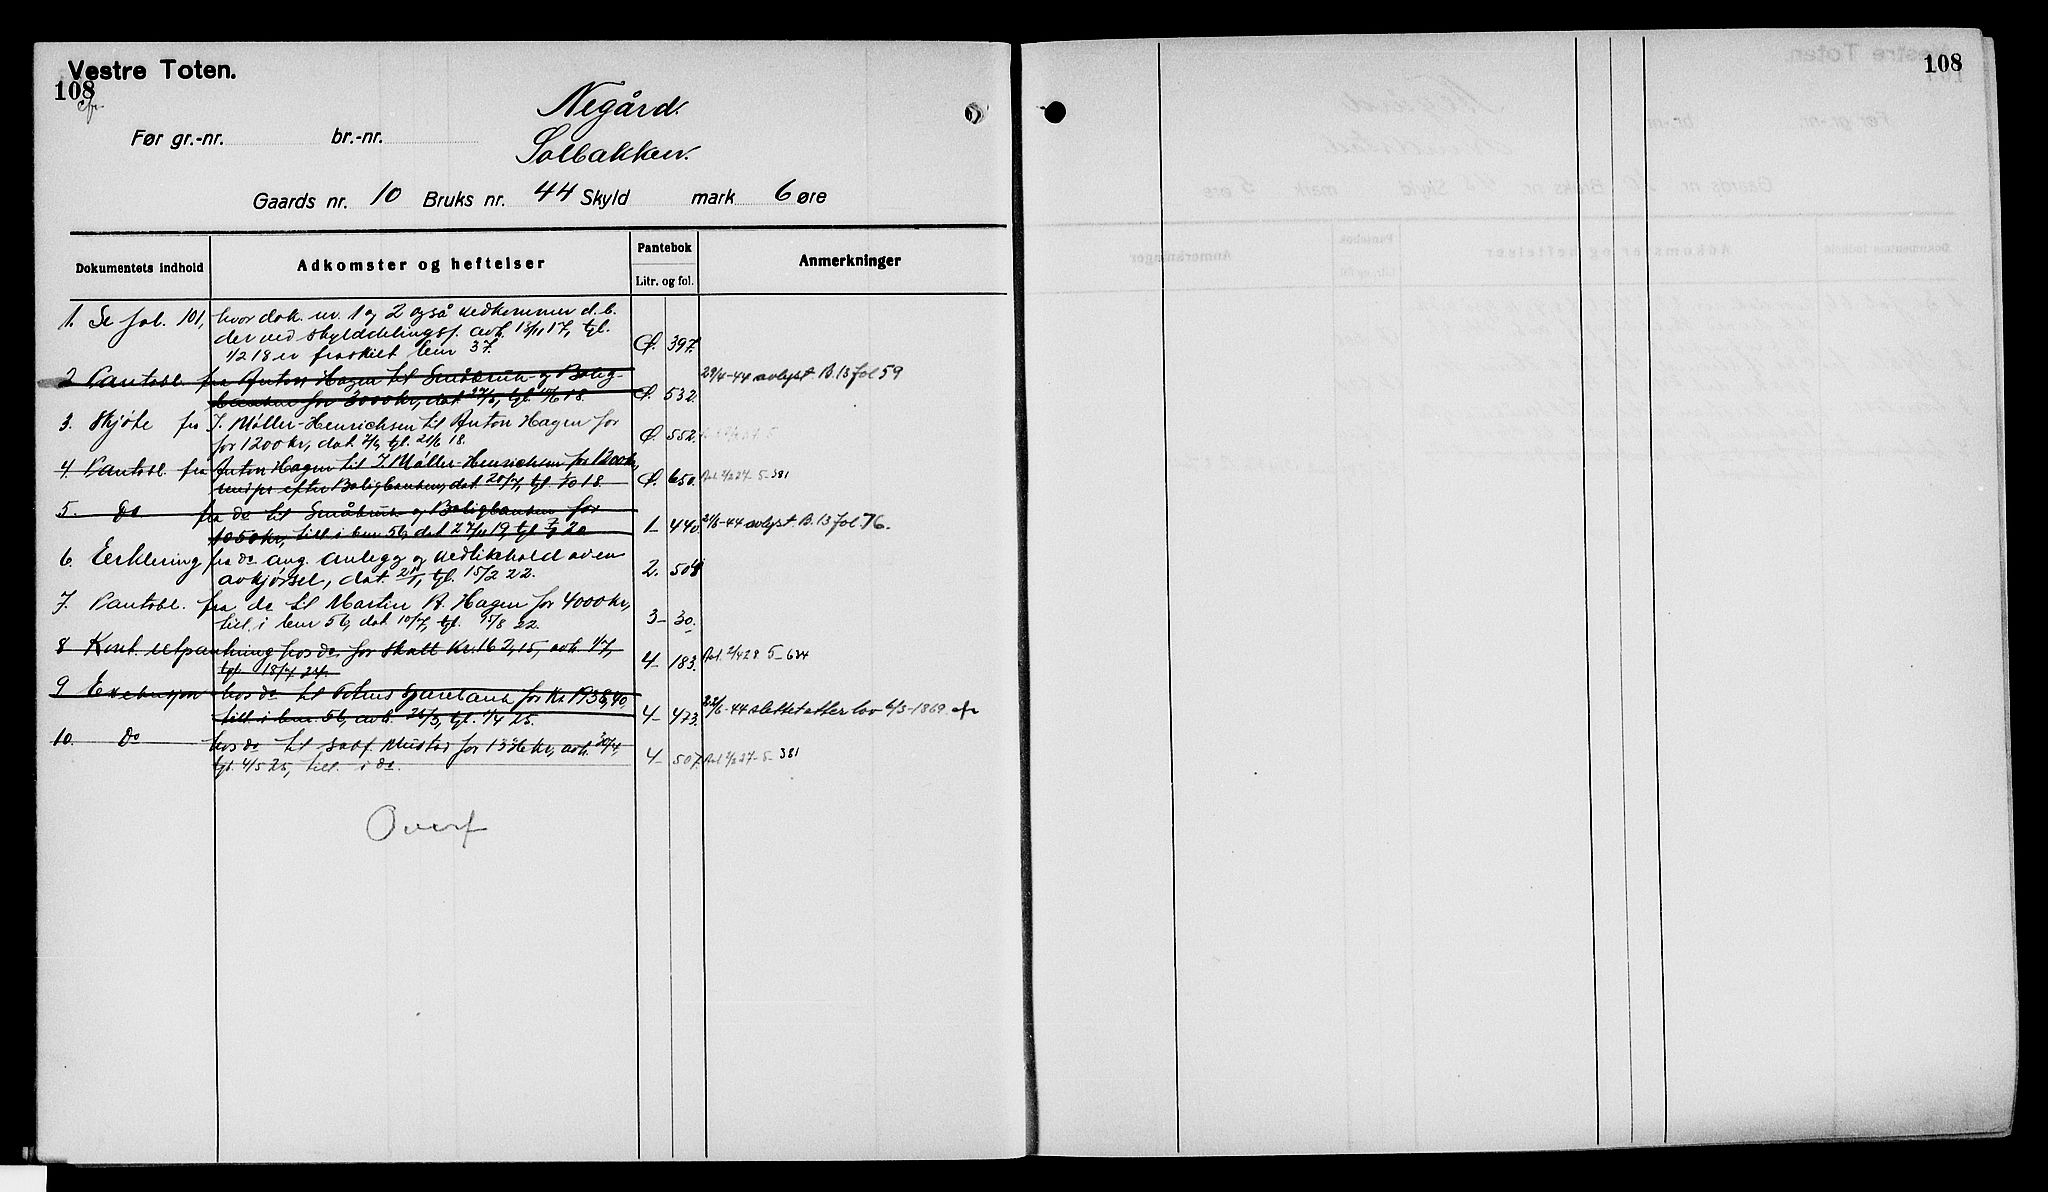 Vestre Toten.
108
cfr
Negård.
Før gr.-nr. br.-nr.
Solbakken.
Gaards nr. 10 Bruks nr. 44 Skyld mark 6 øre
Dokumentets indhold
Adkomster og heftelser
Pantebok
Litr. og fol.
Anmerkninger
1. Se fol. 101, hvor dok. nr. 1 og 2 også vedkommer d. b.
der ved skylddelingsf. avh. 13/11 17, tgl.
1/2 18 er fraskilt bnr 37. 397.
2 Pantobl. fra Anton Hagen til Småbruk- og Bolig-
banken for 3000 kr, dat. 27/5, tgl. 15/6 18. 532. 29/4-44 avlyst B. 13 fol 59
3. Skjøte fra J. Møller-Henrichsen til Anton Hagen for
for 1200 kr, dat. tgl. 21/6 18. 552.
4. Pantobl. fra Anton Hagen til J. Møller-Henrichsen for 1200 kr,
efter Boligbanken, dat. 20/7, tgl. 18. 650. 27 5-381
5. Do fra do til Småbruk og Boligbanken for
1050 kr, till. i bnr 56, dat. 27/11 19, tgl. 20 1- 440 21/6-44 avlyst B. 13 fol 76.
6. Eerklering fra do ang. anlegg og vedlikehold av en
avkjørsel, dat. tgl. 15/2 22. 2. 508
7. Pantobl. fra do til Martin A. Hagen for 4000 kr,
till. i bnr 56, dat. 10/7, tgl. 15/8 22. 3- 30.
8 Kont. utpantning hos do for skatt kr. 162,15, avh. 1/7,
tgl. 18/7 24. 4- 183. 28 5-634
9 Exekusjon hos do til Totens Sparebank for kr. 1938,40,
till. i bnr. 56, avh. 26/3, tgl. 1/4 25. 4- 473. 22/6-44 slettet etter lov 6/3-1869. cfr
10. Do hos do til Mustad for kr, avh. 30/4,
tgl. 4/5 25, till. i do. 4- 507. 27-5-381
Overf
108